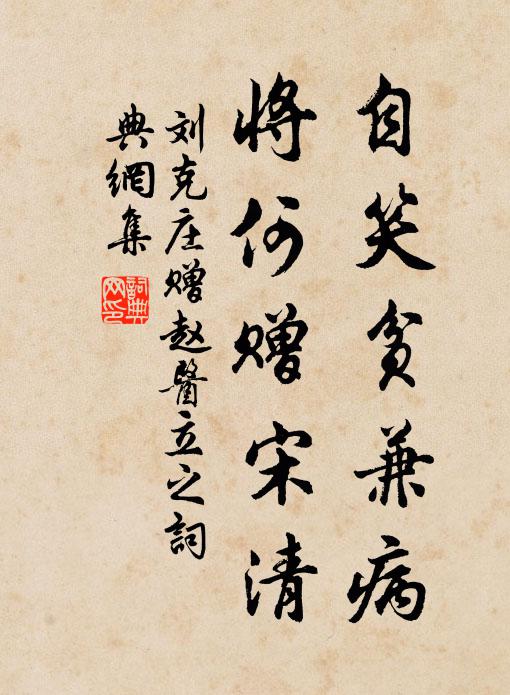 自笑贫兼病
将何赠宋清
刘克庄赠赵医立之词
典網集
詞典網印